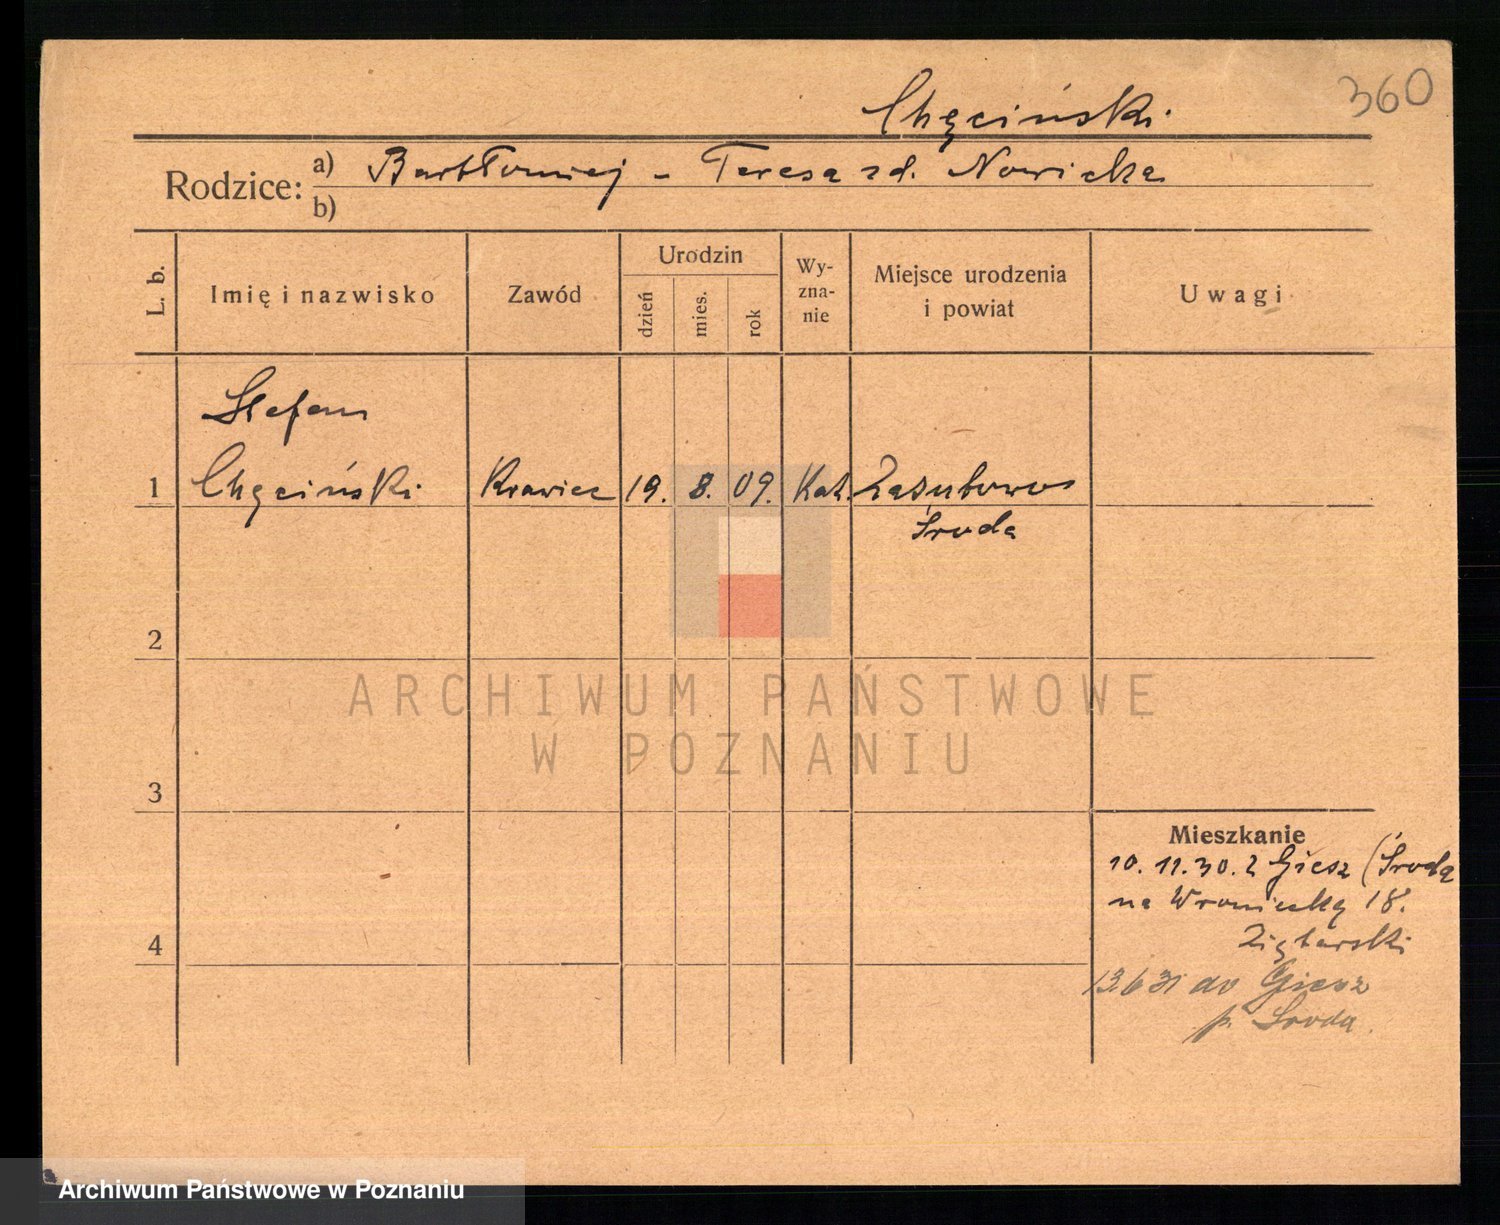 360
Chęciński
Rodzice: a) Bartłomiej - Teresa zd. Nowicka
b)
L. b.
Imię i nazwisko
Zawód
Urodzin
dzień
mies.
rok
Wy-
zna-
nie
Miejsce urodzenia
i powiat
Uwagi
Stefan
1 Chęciński Krawiec 19. 8. 09. Kat. Zasutowo
Środa
2
ARCHIWUM PAŃSTWOWE
W POZNANIU
3
Mieszkanie
10. 11. 30. z Giecz (Środa
na Wroniecką 18.
4
13 6 31 do Giecz
p. Środa.
Archiwum Państwowe w Poznaniu